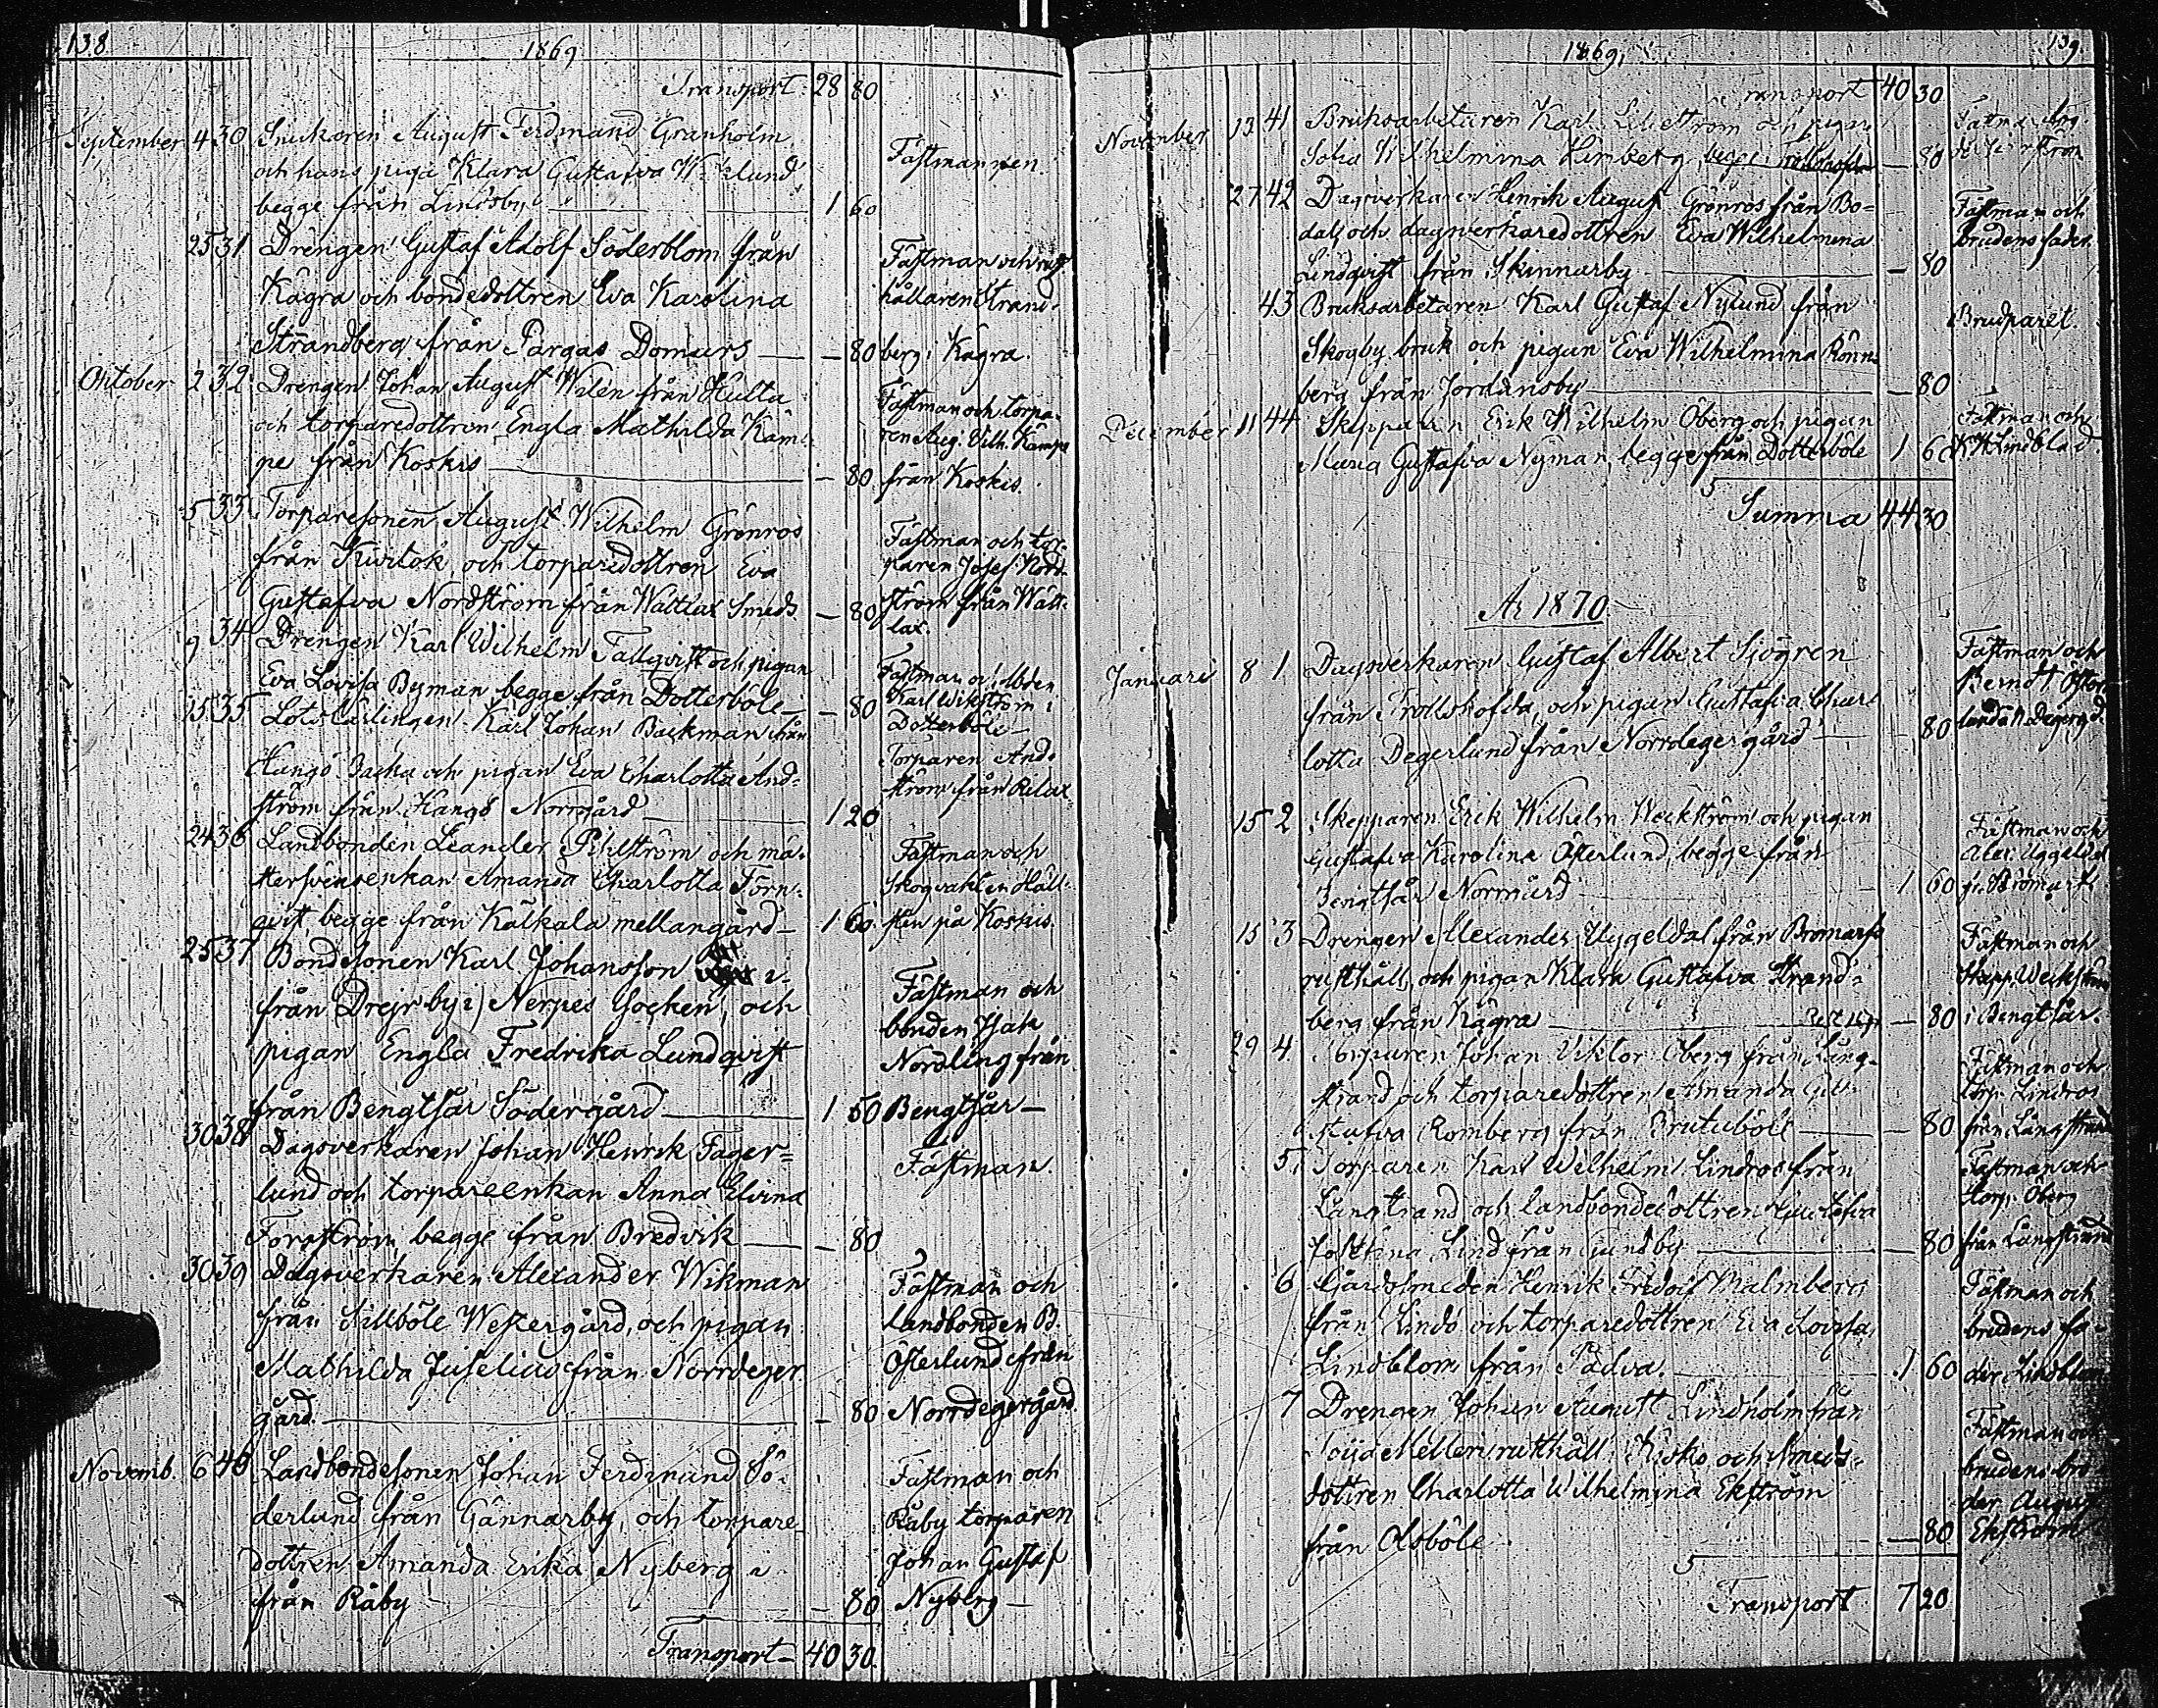 138
1869
Transport 28 80
September 4 30 Snickaren August Ferdinand Granholm
och hans piga Klara Gustafva
begge från Lindsby 1 60
Fästmannen.
25 31 Drengen Gustaf Adolf Söderblom från
Kägra och bondedottren Eva Karolina
Strandberg från Pargas Domars — 80
Fästman och rust
hållaren Strand-
berg i Kägra.
Oktober 2 32 Drengen Johan August Wilen från Hulta
och torparedottren Engla Mathilda Käm-
pe från Koskis — 80
Fästman och torpa-
ren Aug. Vilh. Kämpe
från Koskis.
5 33 Torparesonen August Wilhelm Grönros
från Kivitok och torparedottren Eva
Gustafva Nordström från Wättlax Smeds — 80
Fästman och tor-
paren Josef Nord-
ström från Wätt-
lax.
9 34 Drengen Karl Wilhelm Fallqvist och pigan
Eva Lovisa Byman begge från Dotterböle — 80
Fästman
Karl Wikström i
Dotterböle
15 35 Lotslärlingen Karl Johan Backman från
Hangö Backa och pigan Eva Charlotta And-
ström från Hangö Norrgård 1 20
Torparen And-
ström från Relax
24 36 Landbonden Leander Pihlström och må-
Amanda Charlotta Törn-
qvist begge från Kälkala mellangård — 1 60
Fästman och
Skogvakten Häll-
sten på Koskis.
25 37 Bondesonen Karl Johansson
från Drejrby i Nerpes Socken, och
pigan Engla Fredrika Lundqvist
från Bengtsår Södergård 1 50
Fästman och
bonden Isak
Nordling från
Bengtsår —
30 38 Dagsverkaren Johan Henrik Fager-
lund och torpareenkan Anna Elvina
Forsström begge från Bredvik — 80
Fästman.
30 39 Dagsverkaren Alexander Wikman
från Sillböle Westergård, och pigan
Mathilda Juselius från Norrdeger
gård. — 80
Fästman och
Landbonden B.
Österlund från
Norrdegergård
Novemb. 6 40 Landbondesonen Johan Ferdinand Sö-
derlund från Gännarby, och torpare-
dottren Amanda Erika Nyberg
från Råby — 80
Fästman och
Råby torparen
Johan Gustaf
Nyberg —
Transport — 40 30.
139
1869.
Transport 40 30
November 13 41 Bruksarbetaren Karl och pigan
Sofia Wilhelmina begge — 80
27 42 Dagsverkaren Henrik August Grönros från Bo-
dal, och dagsverkaredottren Eva Wilhelmina
Lindqvist från Skinnarby — 80
Fästman och
brudens fader.
43 Bruksarbetaren Karl Gustaf Nylund från
Skogby bruk och pigan Eva Wilhelmina Rönn-
berg från Jordansby — 80
Brudparet.
December 11 44 Skepparen Erik Wilhelm Öberg och pigan
Maria Gustafva Nyman, begge från Dotterböle 1 60
Fästman och
Lindblad.
Summa 44 30
År 1870
Januari 8 1 Dagsverkaren Gustaf Albert Sjögren
från Trollshofda, och pigan Gustafva Char-
lotta Degerlund från Norrdegergård 80
Fästman och
Berndt Öster-
lund
15 2 Skepparen Erik Wilhelm Weckström och pigan
Gustafva Karolina Österlund begge från
Bengtsår Norrgård 1 60
Fästman och
Alex. Uggeldal
fr. Bromarf
15 3 Drengen Alexander Uggeldal från Bromarf
rusthåll, och pigan Klara Gustafva Strand-
berg från Kägra — 80
Fästman och
Skepp. Weckström
i Bengtsår.
29 4 Torparen Johan Viktor Öberg från Lång-
strand och torparedottren Amanda Gu-
stafva Romberg från Brutuböle — 80
Fästman och
torp. Lindros
från Långstrand
5 Torparen Karl Wilhelm Lindros från
Långstrand och landbondedottren Gustafva
Josefina Lind från — 80
Fästman och
torp. Öberg
från Långstrand
6 Gårdssmeden Henrik Fredolf Malmberg
från Lindö och torparedottren Eva Lovisa
Lindblom från Padva. 1 60
Fästman och
brudens fa-
der Lindblom
7 Drengen Johan August Lindholm från
Mellem rusthåll i Kisko och Smeds-
dottren Charlotta Wilhelmina Ekström
från Olsböle — 80
Fästman och
brudens bro-
der August
Ekström
Transport 7 20